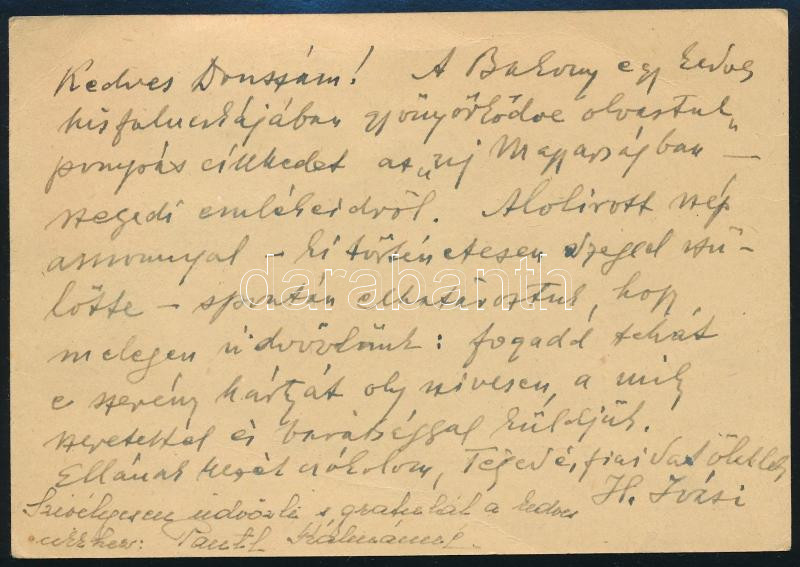 Kedves Dorszám! A Bakony egy kedves
kis falucskájában gyönyörködve olvastuk
pompás cikkedet az „Uj Magyarságban" —
szegedi emlékeidről. Alolirott szép
asszonnyal – ki történetesen Szeged szü-
lötte – spontán elhatároztuk, hogy
melegen üdvözlünk: fogadd tehát
e szerény kártyát oly szivesen, a mily
szeretettel és barátsággal küldjük.
Ellának kezét csókolom, Téged és fiaidat ölellek
H.
Szivélyesen üdvözli s gratulál a kedves
cikkhez: Kálmánné
darabanth